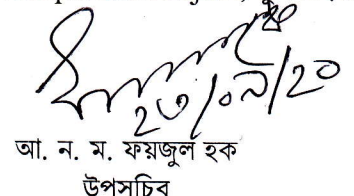 ২৩/০৯/২০
আ. ন. ম. ফয়জুল হক
উপসচিব